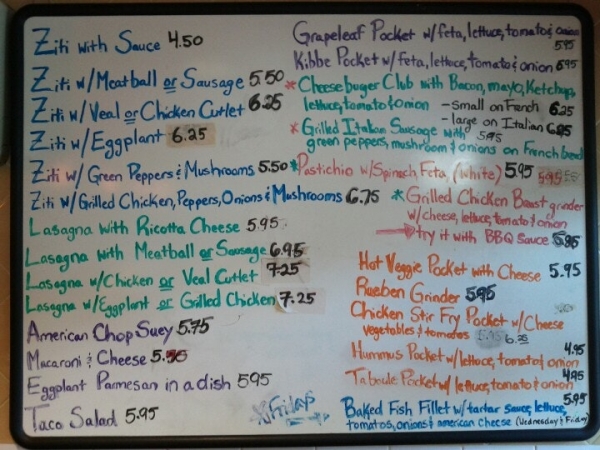 Ziti with Sauce 4.50
Ziti w/Meatball or Sausage 5.50
Ziti w/Veal or Chicken Cutlet 6.25
Ziti w/Eggplant 6.25
Ziti w/Green Peppers & Mushrooms 5.50
Ziti w/Grilled Chicken, Peppers, Onions & Mushrooms 6.75
Lasagna with Ricotta Cheese 5.95
Lasagna with Meatball or Sausage 6.95
Lasagna w/Chicken or Veal Cutlet 7.25
Lasagna w/Eggplant or Grilled Chicken 7.25
American Chop Suey 5.75
Macaroni & Cheese
Eggplant Parmesan in a dish 5.95
Taco Salad 5.95
Fridays
Grapeleaf Pocket w/feta, lettuce, tomato & onion
5.95
Kibbe Pocket w/feta, lettuce, tomato & onion 6.95
* Cheeseburger Club with Bacon, mayo, Ketchup,
lettuce, tomato & onion - small on French 6.25
- large on Italian 6.95
* Grilled Italian Sausage with 5.95
green peppers, mushroom & onions on French bread
* Pastichio w/Spinach, Feta, (White) 5.95
* Grilled Chicken Breast grinder
w/cheese, lettuce, tomato & onion
try it with BBQ Sauce 5.95
Hot Veggie Pocket with Cheese 5.95
Rueben Grinder 5.95
Chicken Stir Fry Pocket w/Cheese
vegetables & tomatoes 6.25
4.95
Hummus Pocket w/lettuce, tomato & onion
4.95
Taboule Pocket w/lettuce, tomato & onion
5.95
Baked Fish Fillet w/tartar sauce, lettuce,
tomatos, onions & american cheese (Wednesday & Friday)